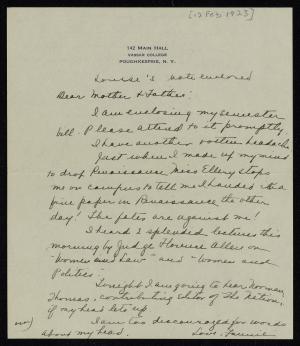 [12 Feb 1923]
142 MAIN HALL
VASSAR COLLEGE
POUGHKEEPSIE, N. Y.
Louise's note enclosed
Dear Mother & Father:
I am enclosing my semester
bill. Please attend to it promptly.
I have another rotten headache
Just when I made up my mind
to drop Renaissance Miss Ellery stops
me on campus to tell me I handed in a
fine paper in Renaissance the other
day! The fates are against me!
I heard 2 splendid lectures this
morning by Judge Florence Allen on
"Women and Law" and "Women and
Politics".
Tonight I am going to hear Norman
Thomas, contributing editor of The Nation,
if my head lets up.
I am too discouraged for words
about my head. Love, Fannie